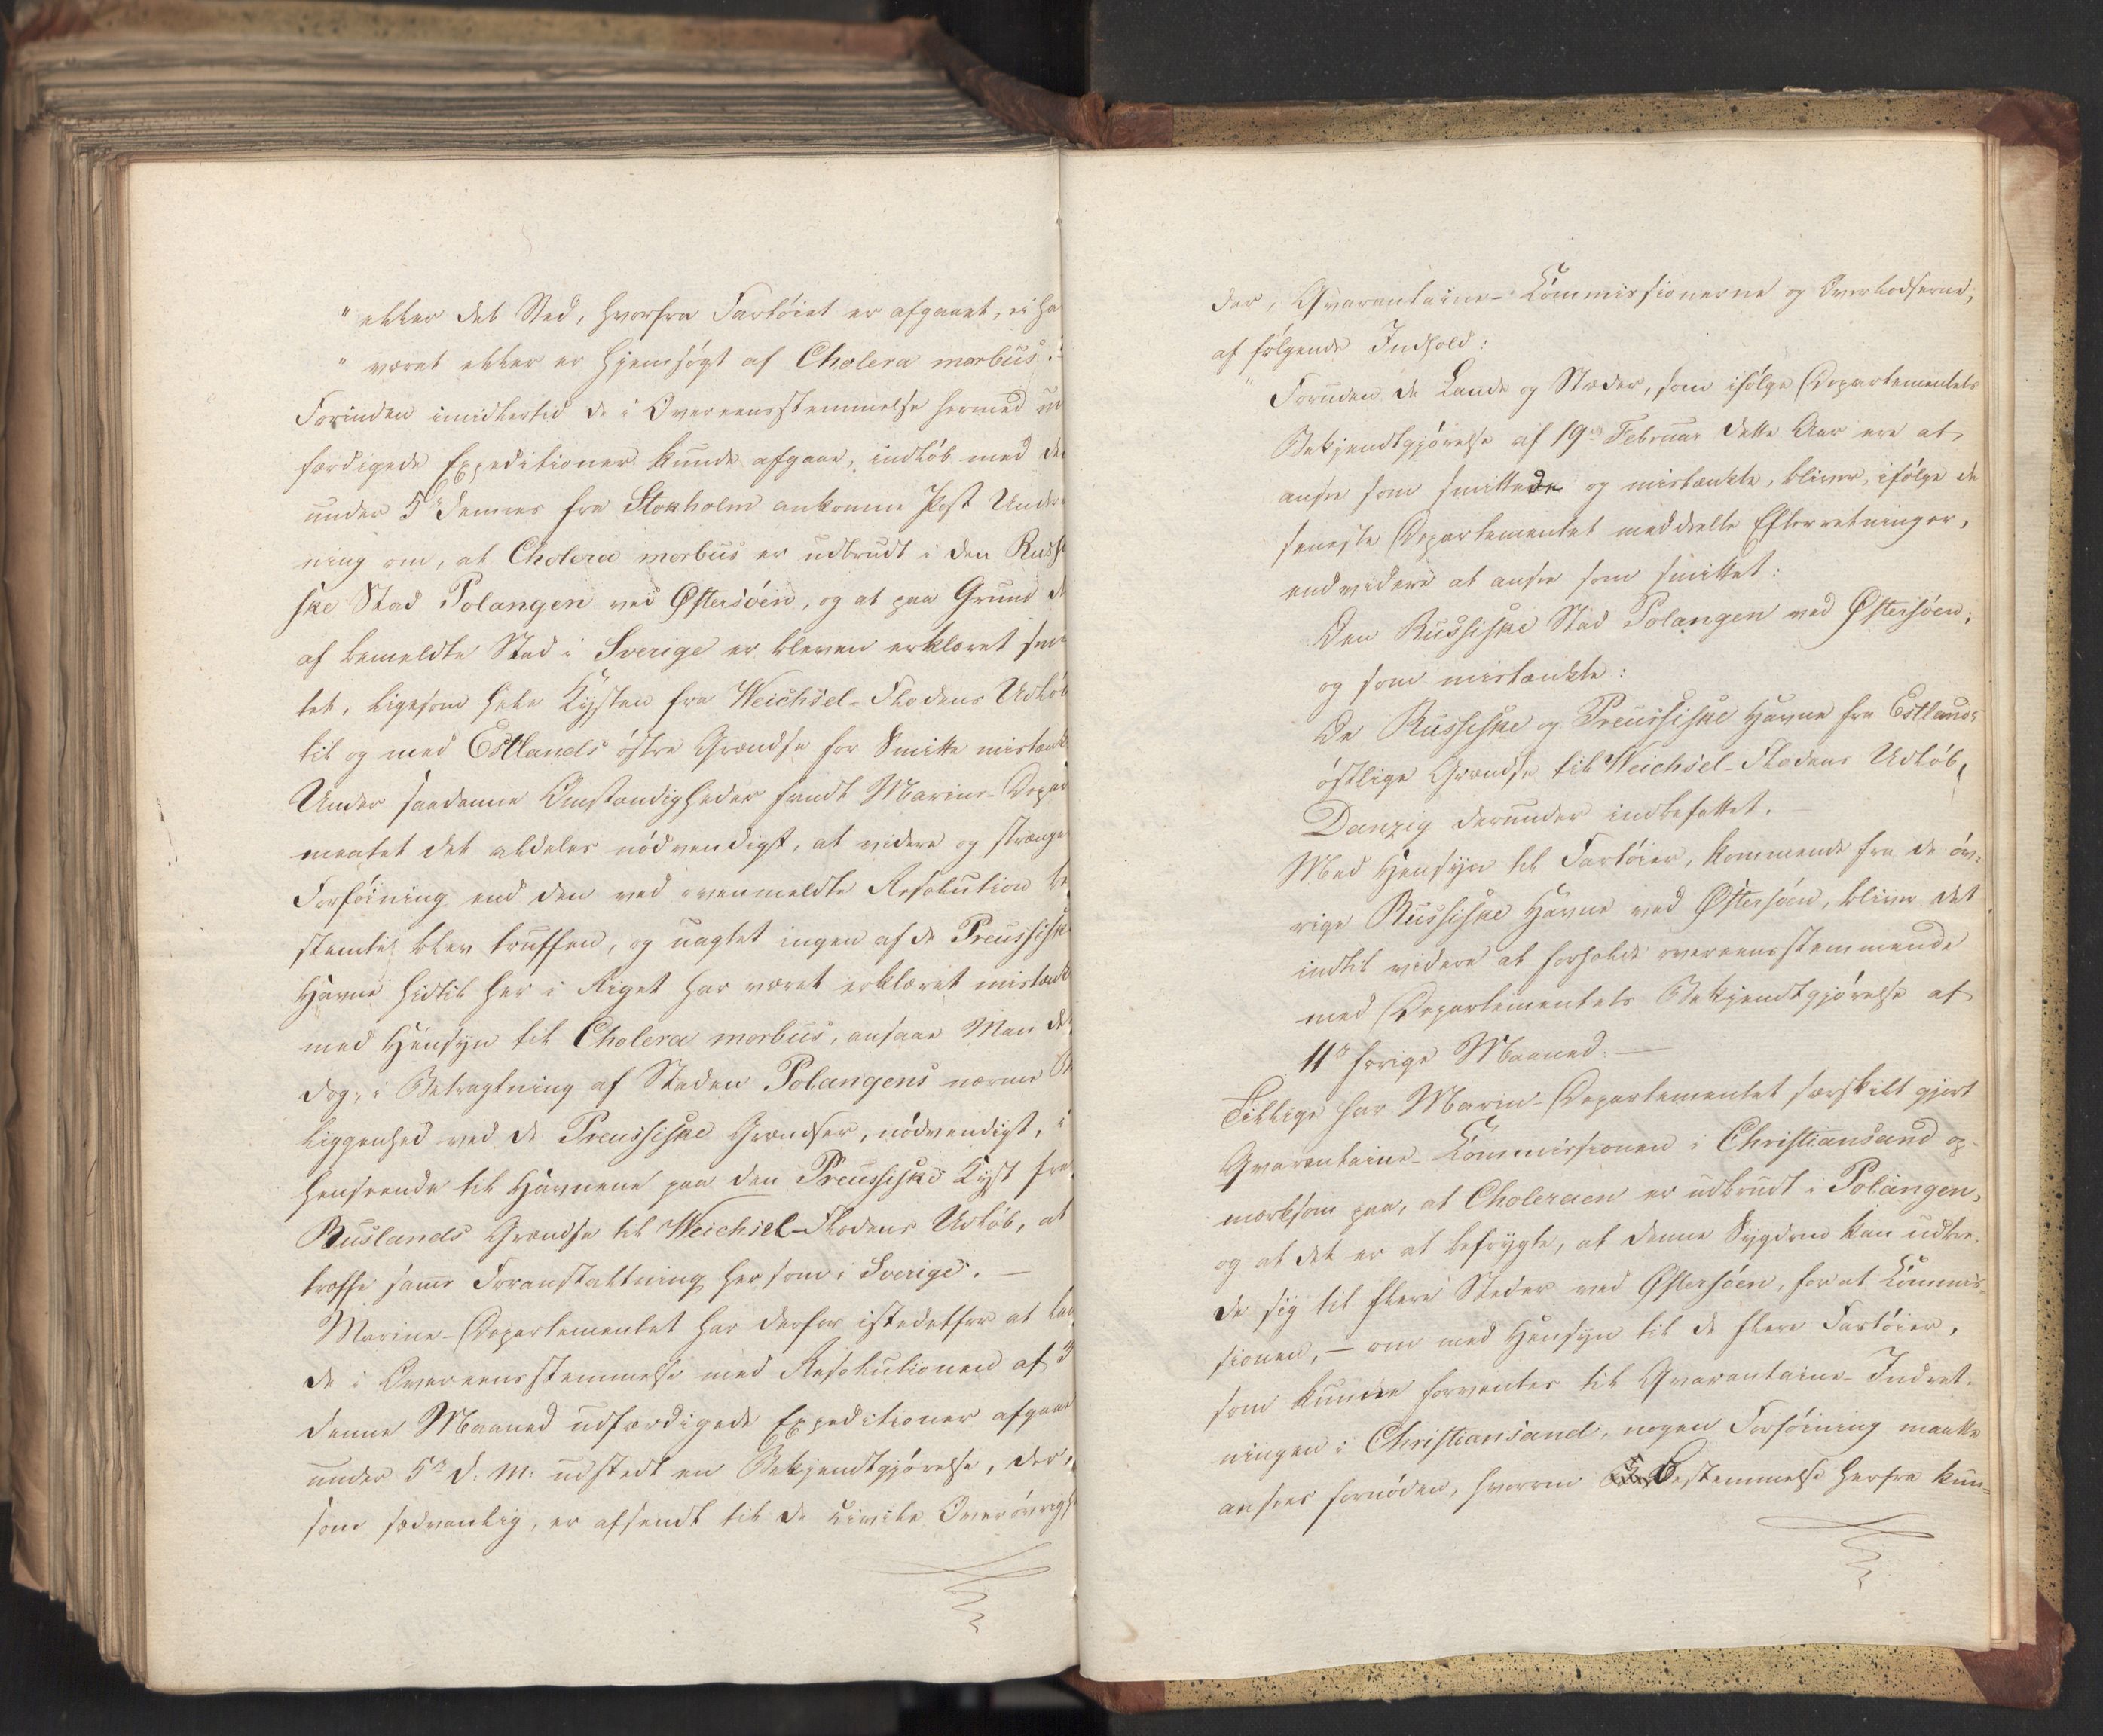 " eller det Sted, hvorfra Fartöiet er afgaaet, ei ha
" været eller er hjemsøgt af Cholera morbus."
Forinden imidlertid de i Overeensstemmelse hermed ud
færdigede Expeditioner kunde afgaae, indløb med den
under 5te dennes fra Stokholm ankomne Post Underret
ning om, at Cholera morbus er udbrudt i den Russi
ske Stad Polangen ved Østersöen, og at paa Grund de
af bemeldte Stad i Sverige er bleven erklæret smit
tet, ligesom hele Kysten fra Weichsel-Flodens Udløb
til og med Estlands östre Grændse for Smitte mistænkt
Under saadanne Omstændigheder fandt Marine-Depar
mentet det aldeles nödvendigt, at videre og strænger
Forföining end den ved ovenmeldte Resolution be
stemte, blev truffen, og uagtet ingen af de Preussiske
Havne hidtil her i Riget har været erklæret mistænkt
med Hensyn til Cholera morbus, ansaae Man det
dog, i Betragtning af Staden Polangens nærme Be
liggenhed ved de Preussiske Grændser, nödvendigt, i
Henseende til Havnene paa den Preussiske Kyst fra
Ruslands Grændse til Weichsel-Flodens Udløb, at
træffe samme Foranstaltning her som i Sverige. —
Marine-Departementet har derfor istedetfor at lade
de i Overeensstemmelse med Resolutionen af 3
denne Maaned udfærdigede Expeditioner afgaae
under 5te d. M. udstedt en Bekjendtgjörelse, der,
som sædvanlig, er afsendt til de civile Overövrighe
der, Qvarantaine-Commissionerne og Overlodserne,
af følgende Indhold:
" Foruden de Lande og Stæder, som ifölge Departementets
Bekjendtgjörelse af 19de Februar dette Aar ere at
ansee som smittede og mistænkte, bliver, ifölge de
seneste Departementet meddeelte Efterretninger,
endvidere at ansee som smittet:
Den Russiske Stad Polangen ved Østersöen;
og som mistænkte:
De Russiske og Preussiske Havne fra Estlands
östlige Grændse til Weichsel-Flodens Udløb,
Danzig derunder indbefattet. —
Med Hensyn til Fartöier, kommende fra de öv-
rige Russiske Havne ved Østersöen, bliver det
indtil videre at forholde overeensstemmende
med Departementets Bekjendtgjörelse af
11te forige Maaned. —
Tillige har Marine-Departementet særskilt gjort
Qvarantaine-Commissionen i Christiansand op-
mærksom paa, at Choleraen er udbrudt i Polangen,
og at det er at befrygte, at denne Sygdom kan udbre-
de sig til flere Steder ved Østersöen, for at Commis-
sionen, — om med Hensyn til de flere Fartöier,
som kunne forventes til Qvarantaine-Indret-
ningen i Christiansand, nogen Forföining maatte
ansees fornöden, hvorom Bestemmelse herfra kun-